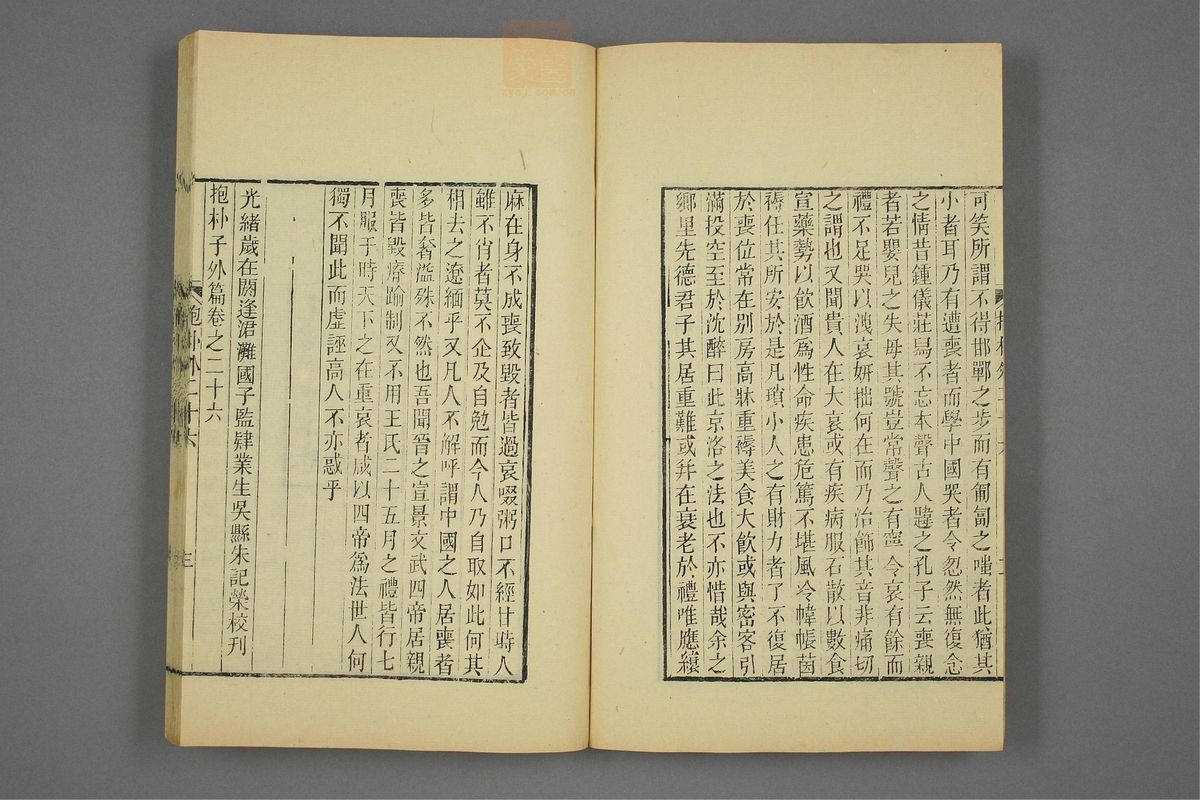 可笑所謂不得邯鄲之步而有匍匐之嗤者此猶其
小者耳乃有遭喪者而學中國哭者令忽然無復念
之情昔鍾儀莊舄不忘本聲古人韙之孔子云喪親
者若嬰兒之失母其號豈常聲之有寧令哀有餘而
禮不足哭以洩哀妍拙何在而乃治飾其音非痛切
之謂也又聞貴人在大哀或有疾病服石散以數食
宣藥勢以飲酒爲性命疾患危篤不堪風冷幃帳茵
褥任其所安於是凡瑣小人之有財力者了不復居
於喪位常在别房高牀重褥美食大飲或與密客引
滿投空至於沈醉曰此京洛之法也不亦惜哉余之
鄉里先德君子其居重難或幷在衰老於禮唯應縗
麻在身不成喪致毀者皆過哀啜粥口不經甘時人
雖不肖者莫不企及自勉而今人乃自取如此何其
相去之遼緬乎又凡人不解呼謂中國之人居喪者
多皆奢溢殊不然也吾聞晉之宣景文武四帝居親
喪皆毀瘠踰制又不用王氏二十五月之禮皆行七
月服于時天下之在重哀者咸以四帝爲法世人何
獨不聞此而虛誣高人不亦惑乎
光緒歲在閼逢涒灘國子監肄業生吳縣朱記榮校刊
抱朴子外篇卷之二十六
抱朴外二十六